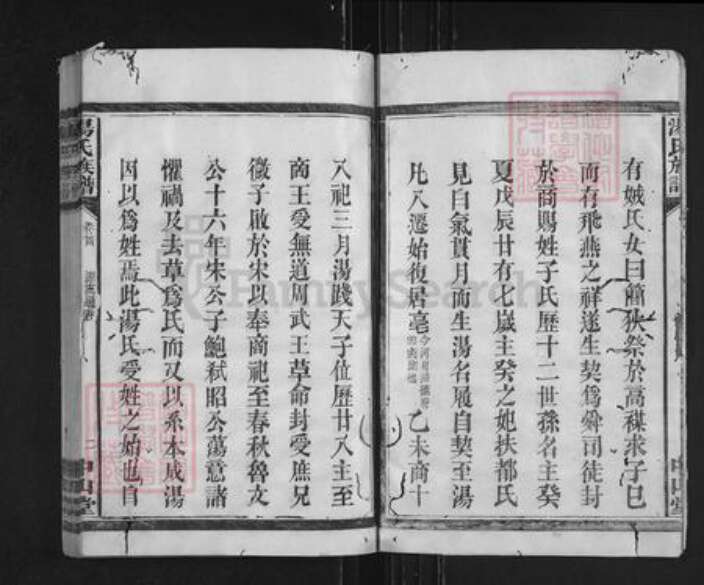 湯氏族譜
有娀氏女曰簡狄祭於高禖求子巳
而有飛燕之祥遂生契為舜司徒封
於商賜姓子氏歷十二世孫名主癸
夏戊辰廿有七嵗主癸之妃扶都氏
見白氣貫月而生湯名履自契至湯
凡八遷始復居亳 乙未商十
八祀三月湯踐天子位歷廿八主至
商王受無道周武王革命封受庶兄
微子啟於宋以奉商祀至春秋魯文
公十六年宋公子鮑弒昭公蕩意諸
懼禍及去草為氏而又以系本成湯
因以為姓焉此湯氏受姓之始也自
湯氏族譜
卷首
二
中山堂
中山堂
FamilySearch